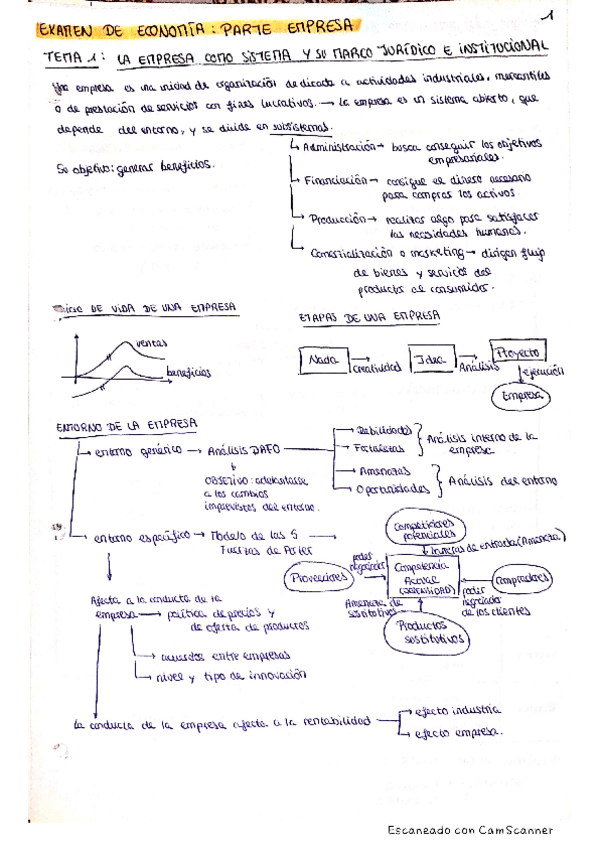 1
EXAMEN DE ECONOMÍA: PARTE EMPRESA
TEMA 1: LA EMPRESA COMO SISTEMA Y SU MARCO JURÍDICO E INSTITUCIONAL
Una empresa es una unidad de organización dedicada a actividades industriales, mercantiles
o de prestación de servicios con fines lucrativos. → la empresa es un sistema abierto, que
depende del entorno, y se divide en subsistemas.
Su objetivo: generar beneficios.
Administración → busca conseguir los objetivos
empresariales.
Financiación → consigue el dinero necesario
para comprar los activos.
Producción → realizar algo para satisfacer
las necesidades humanas.
Comercialización o marketing → dirigen flujo
de bienes y servicios del
productor al consumidor.
DE VIDA DE UNA EMPRESA
ventas
beneficios
ETAPAS DE UNA EMPRESA
Nada → Idea → Proyecto
creatividad Análisis ejecución
Empresa
ENTORNO DE LA EMPRESA
entorno genérico → Análisis DAFO
OBJETIVO: adelantarse
a los cambios
imprevistos del entorno.
Debilidades
Fortalezas
Análisis interno de la
empresa
Amenazas
Oportunidades
Análisis del entorno
entorno específico → Modelo de las 5
Fuerzas de Porter
Competidores
potenciales
barreras de entrada (Amenaza)
Proveedores
poder
negociador
Competencia
Actual
(INTENSIDAD)
Compradores
poder
negociador
de los clientes
Amenaza de
sustitutivos
Productos
sustitutivos
Afecta a la conducta de la
empresa → política de precios y
de oferta de productos
acuerdos entre empresas
nivel y tipo de innovación
la conducta de la empresa afecta a la rentabilidad
efecto industria
efecto empresa.
Escaneado con CamScanner